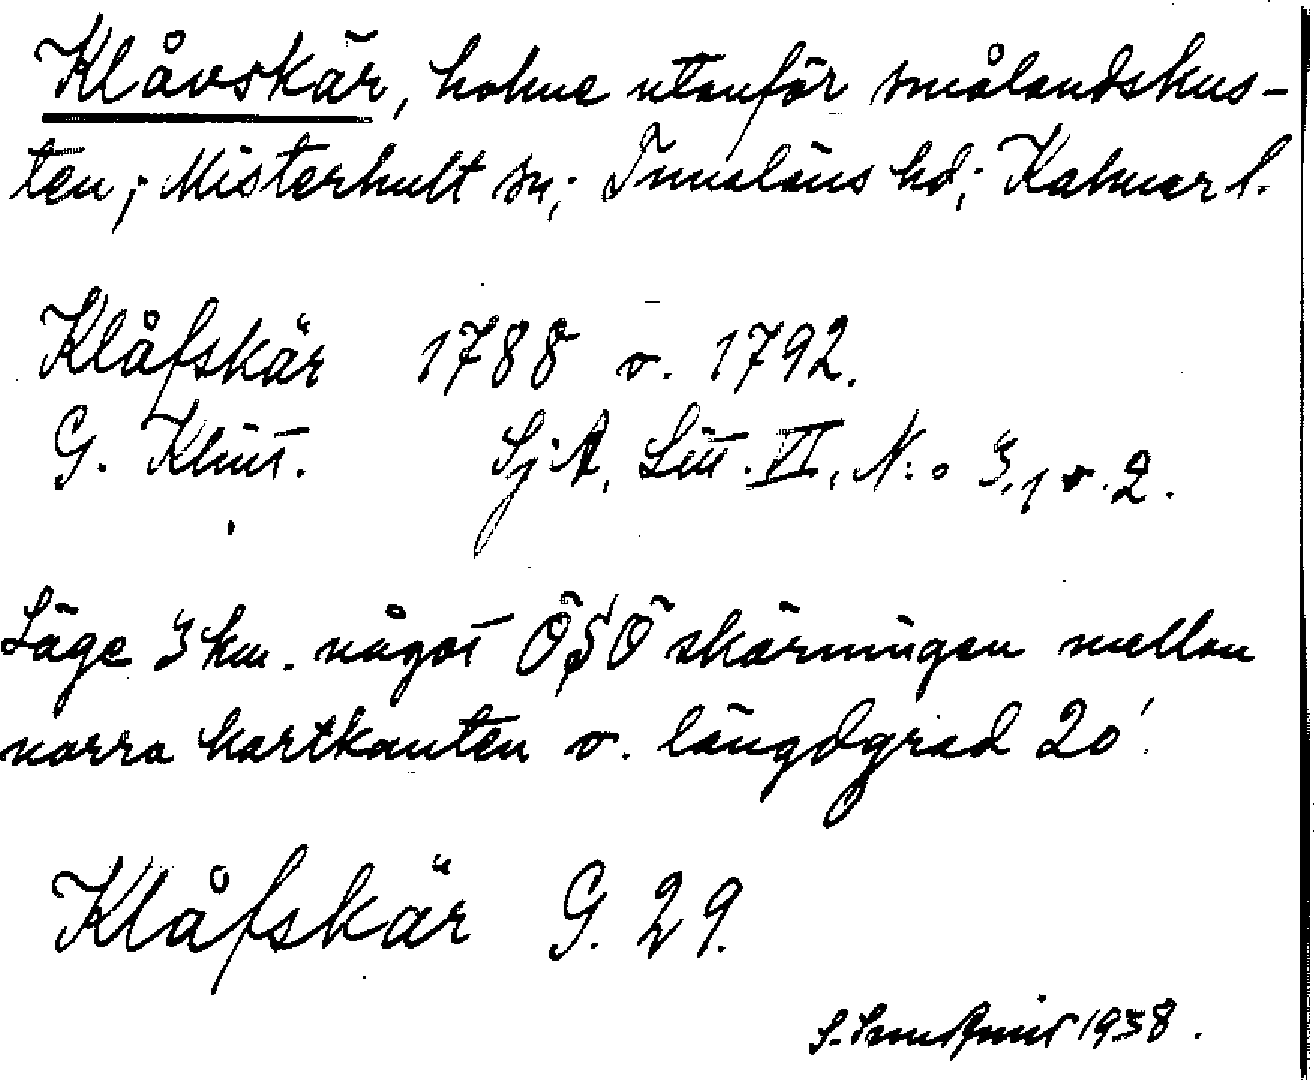 Klåvskär, holme utanför smålandskus-
ten; Misterhult sn; Tunaläns hd; Kalmar l.
Klåfskär 1788 o. 1792.
G. Klint. SjA, Litt. VI, N:o 3,1 o. 2.
Läge 3 km. något ÖSÖ skärningen mellan
norra kartkanten o. längdgrad 20'.
Klåfskär G. 29.
1938.